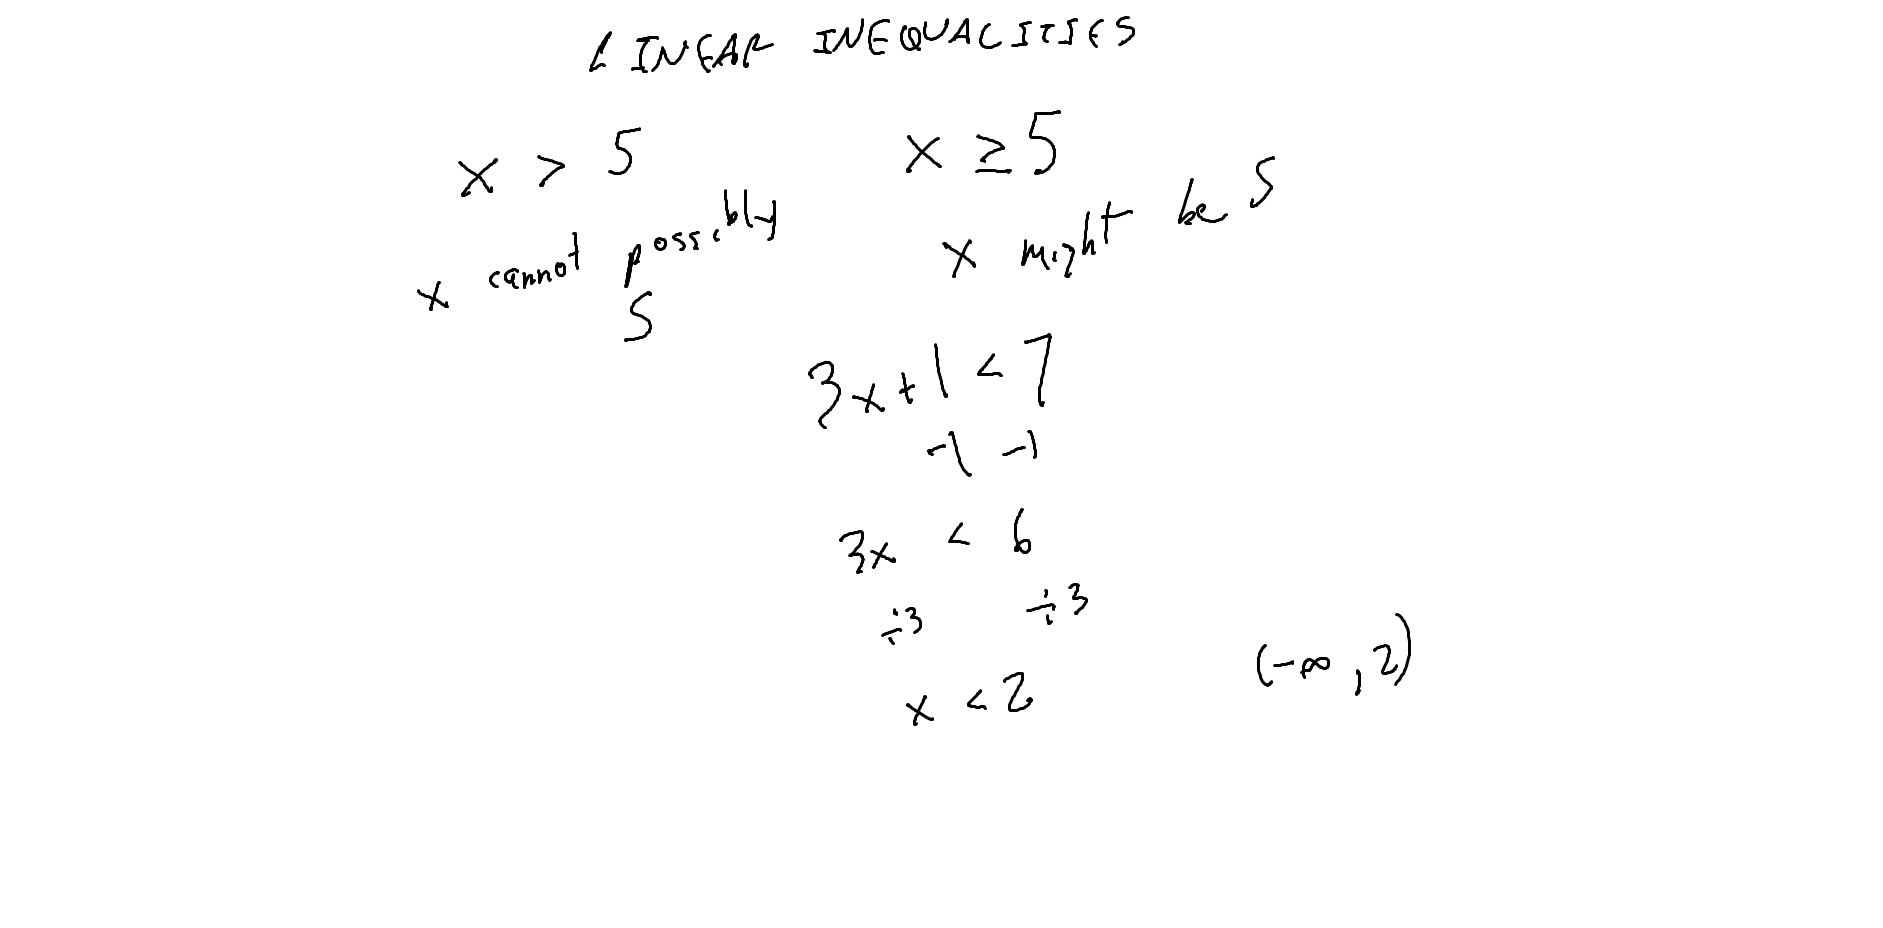 LINEAR INEQUALITIES
x > 5
x cannot possibly
5
x ≥ 5
x might be 5
3x+1 < 7
-1 -1
3x < 6
÷3 ÷3
x < 2
(-∞, 2)